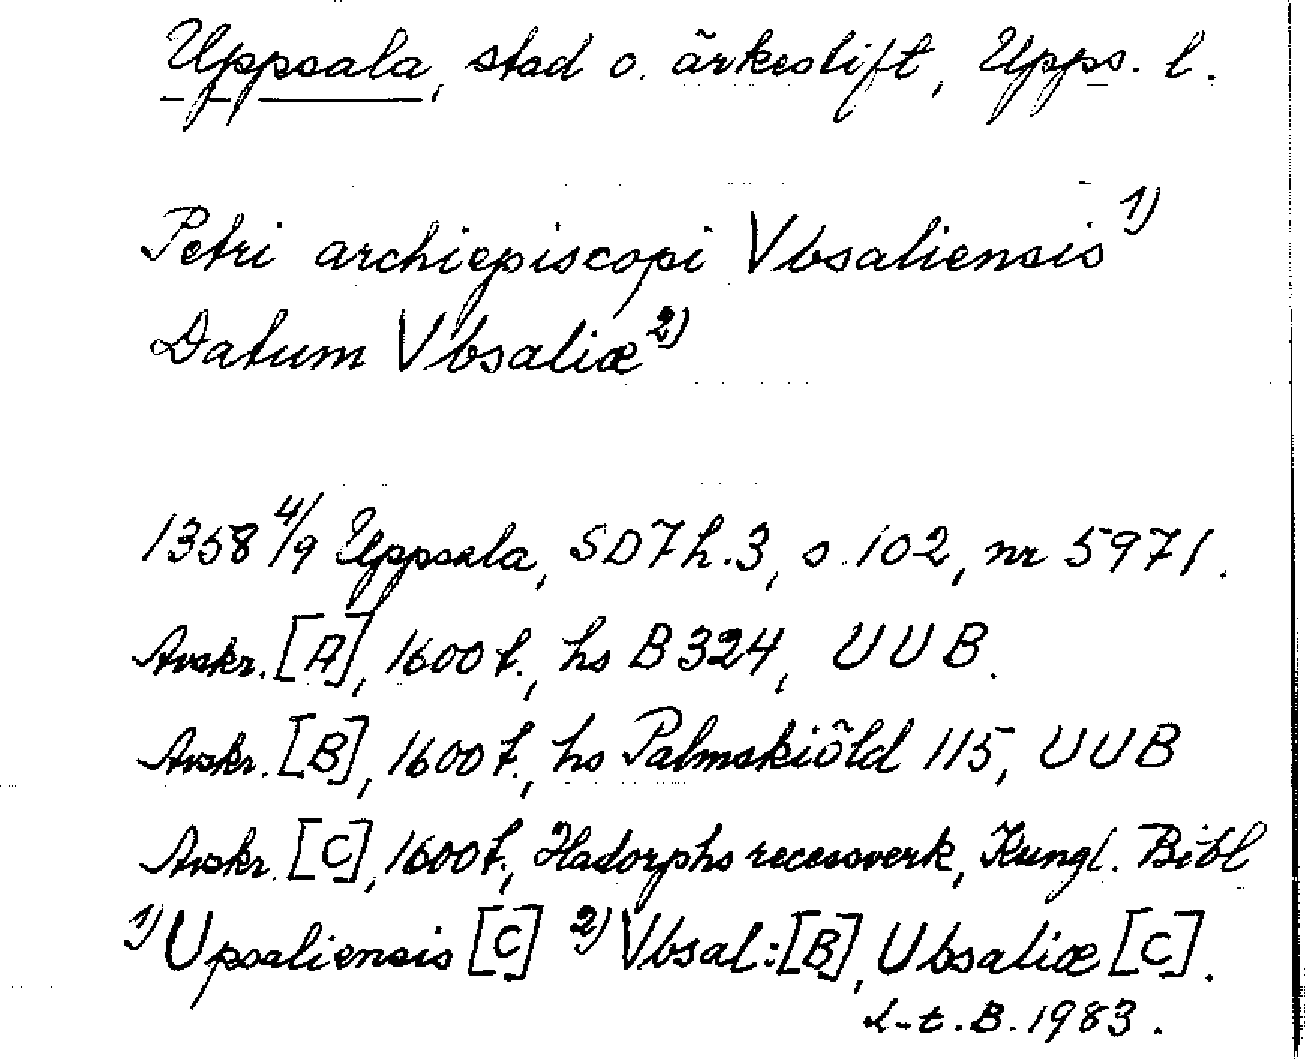 Uppsala, stad o. ärkestift, Upps. l.
Petri archiepiscopi Vbsaliensis 1)
Datum Vbsaliæ 2)
1358 4/9 Uppsala, SD 7 h. 3, s. 102, nr 5971.
Avskr. [A], 1600 t., hs B 324, UUB.
Avskr. [B], 1600 t., hs Palmskiöld 115, UUB
Avskr. [C], 1600 t., Hadorphs recessverk, Kungl. Bibl
1) Upsaliensis [C] 2) Vbsal: [B], Ubsaliæ [C].
L-t. B. 1983.